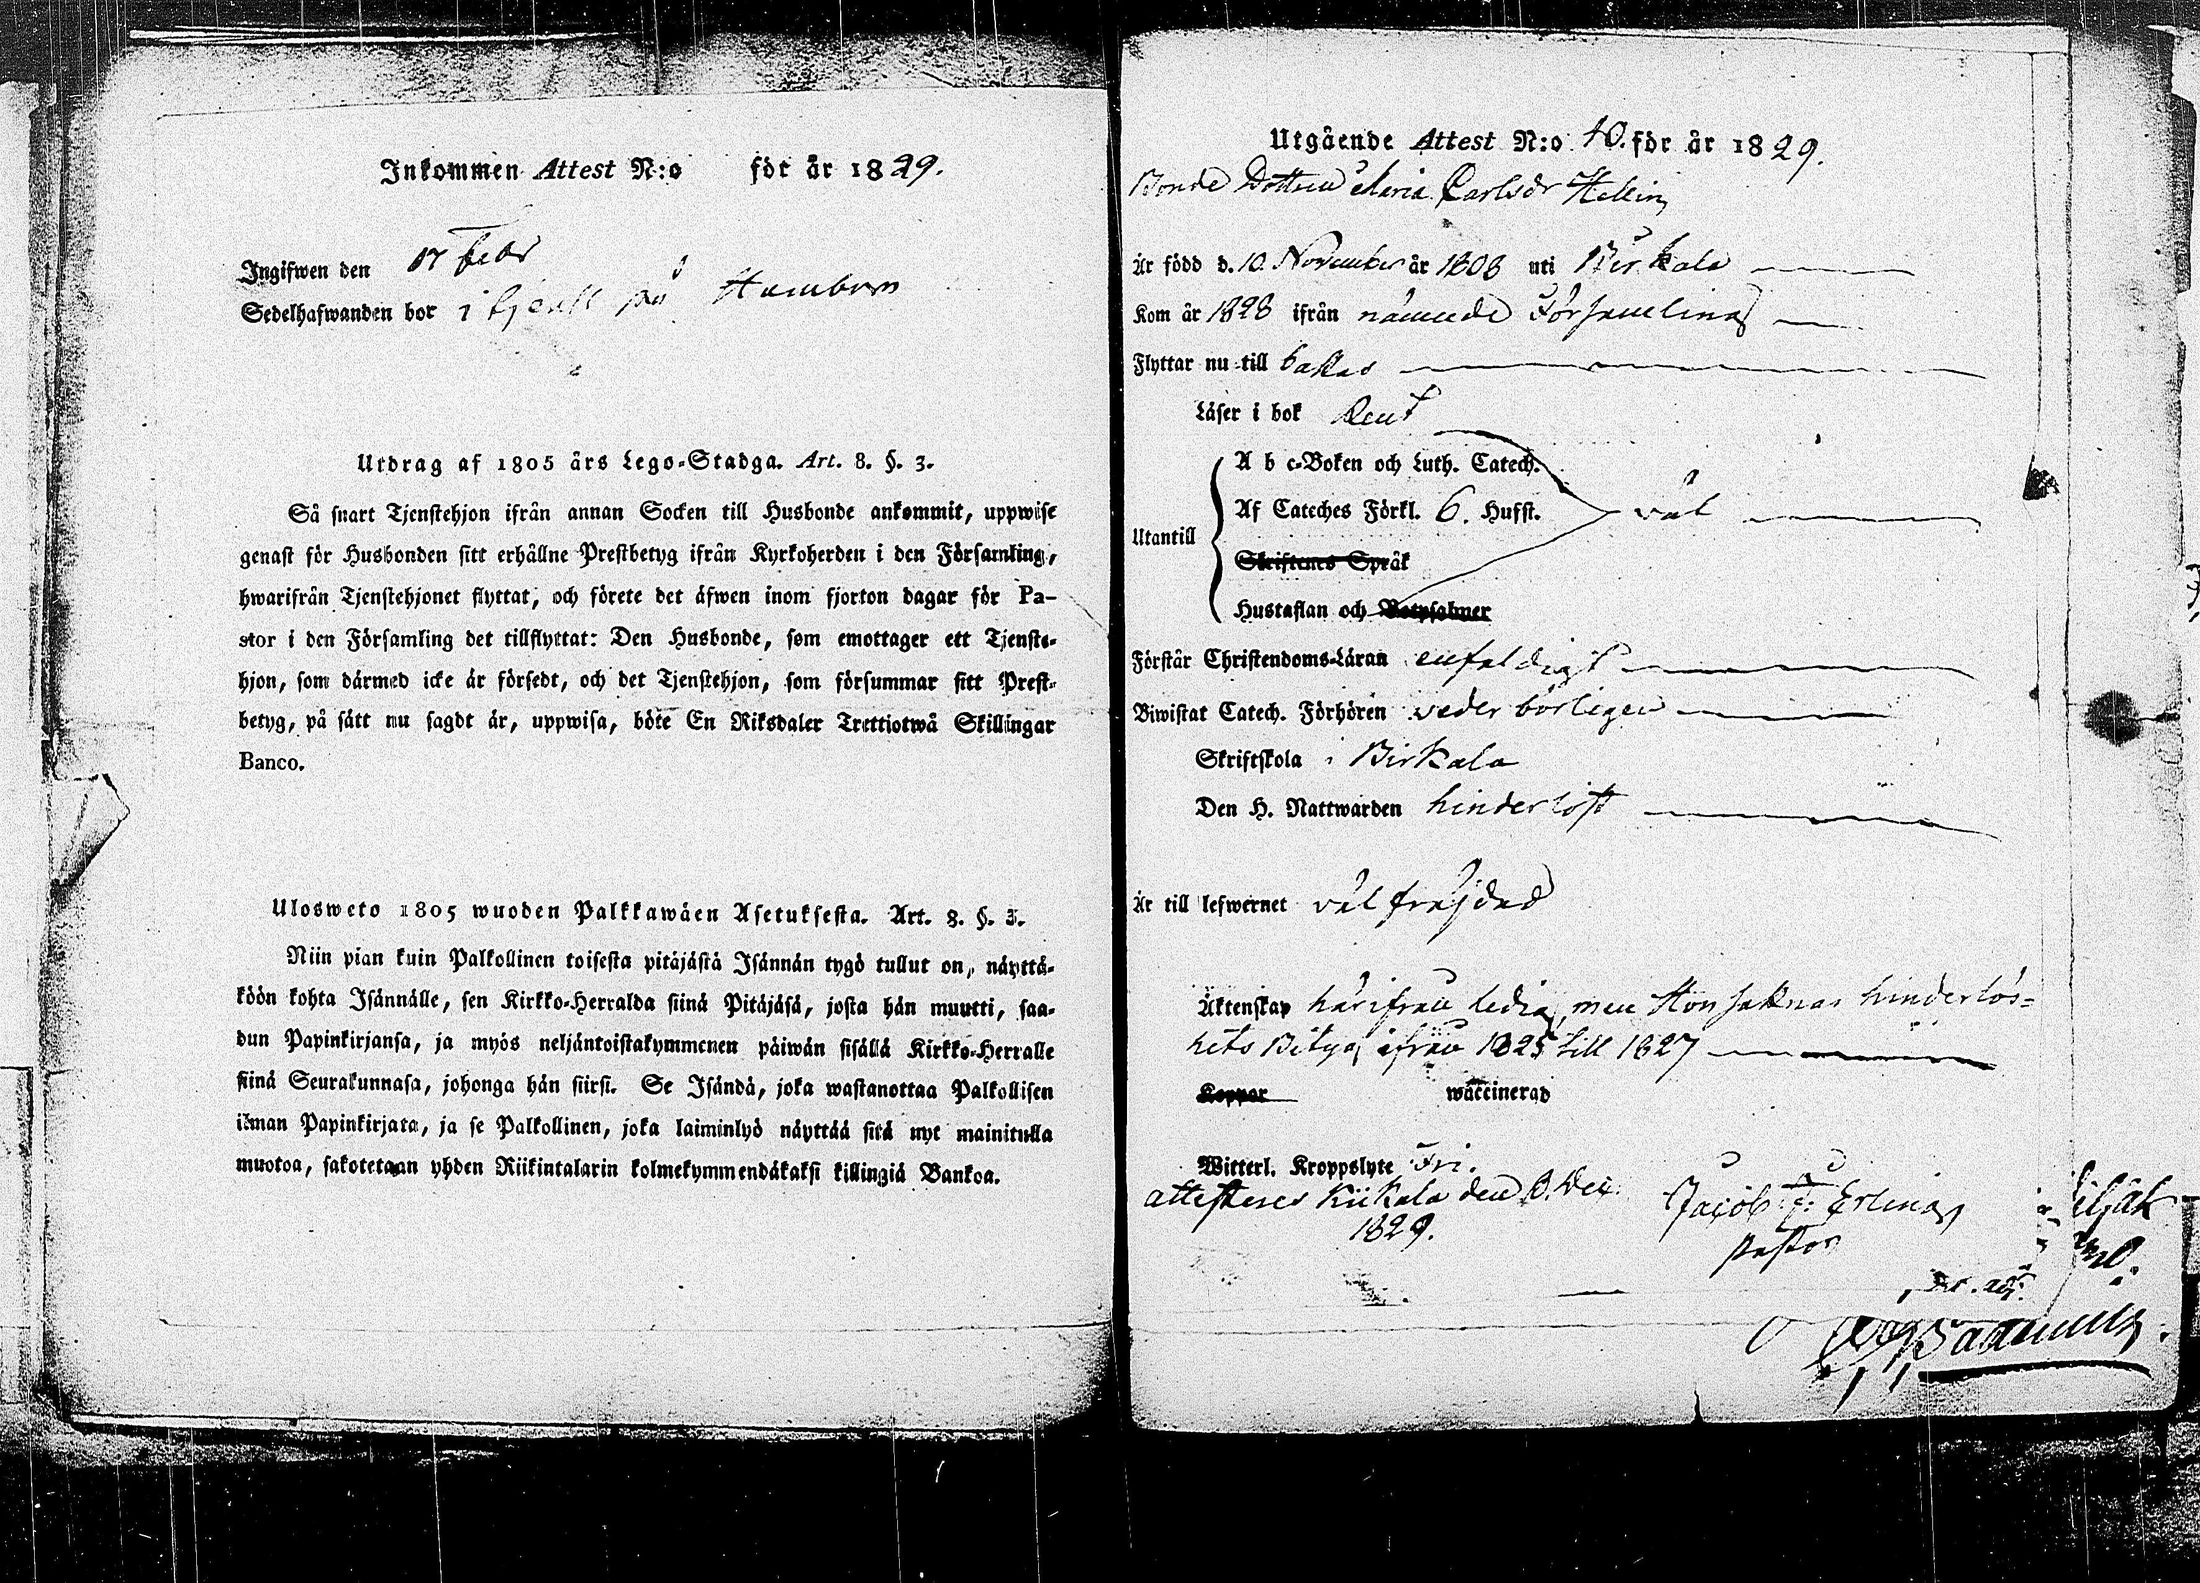 Inkommen Attest N:o för år 1829.
Ingifwen den 17 Febr
Sedelhafwanden bor i tjenst på
Utdrag af 1805 års Lego-Stadga. Art. 8. §. 3.
Så snart Tjenstehjon ifrån annan Socken till Husbonde ankommit, uppwise
genast för Husbonden sitt erhållne Prestbetyg ifrån Kyrkoherden i den Församling,
hwarifrån Tjenstehjonet flyttat, och förete det äfwen inom fjorton dagar för Pa-
stor i den Församling det tillflyttat: Den Husbonde, som emottager ett Tjenste-
hjon, som därmed icke är försedt, och det Tjenstehjon, som försummar sitt Prest-
betyg, på sätt nu sagdt är, uppwisa, böte En Riksdaler Trettiotwå Skillingar
Banco.
Ulosweto 1805 wuoden Palkkawäen Asetuksesta. Art. 8. §. 3.
Niin pian kuin Palkollinen toisesta pitäjästä Isännän tygö tullut on, näyttä-
köön kohta Isännälle, sen Kirkko-Herralda siinä Pitäjäsä, josta hän muutti, saa-
dun Papinkirjansa, ja myös neljäntoistakymmenen päiwän sisällä Kirkko-Herralle
siinä Seurakunnasa, johonga hän siirsi. Se Isändä, joka wastanottaa Palkollisen
ilman Papinkirjata, ja se Palkollinen, joka laiminlyö näyttää sitä nyt mainitulla
muotoa, sakotetaan yhden Riikintalarin kolmekymmendäkaksi killingiä Bankoa.
Utgående Attest N:o 40. för år 1829.
Bonde Dottren Maria Carlsdr Hellin
Är född d. 10. November år 1808 uti Birkala
Kom år 1828 ifrån nämnde Församling
Flyttar nu till bakas
Läser i bok Rent
A b c-Boken och Luth. Catech.
Af Cateches Förkl. 6. Hufst. väl
Utantill
Skriftenes Språk
Hustaflan och Botpsalmer
Förstår Christendoms-Läran enfaldigt
Biwistat Catech. Förhören vederbörligen
Skriftskola i Birkala
Den H. Nattwarden hinderlöst
Är till lefwernet väl fräjdad
Äktenskap härifrån ledig, men Hon saknar hinderlös-
hets Betyg ifrån 1825 till 1827
Koppor waccinerad
Witterl. Kroppslyte Fri.
attesteras Kiikala den 8. Dec.
1829.
Jacob F: Erling
Pastor